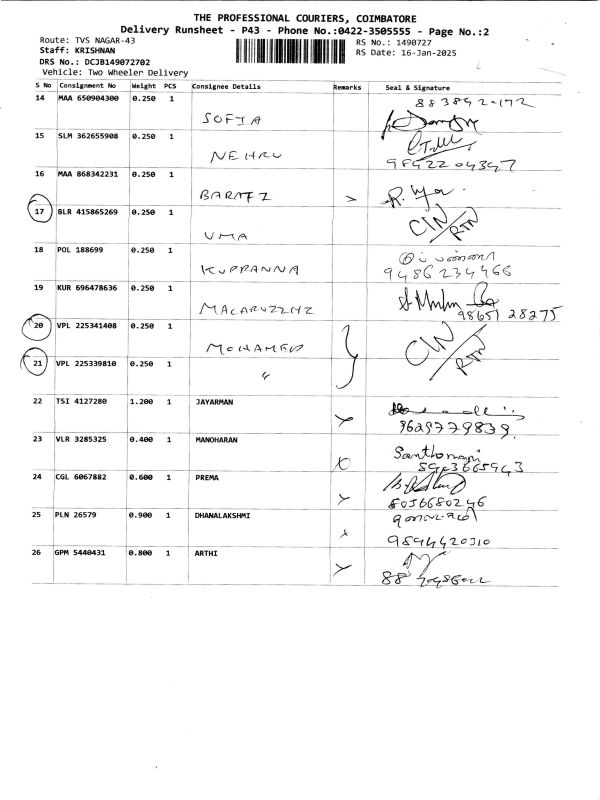 THE PROFESSIONAL COURIERS, COIMBATORE
Delivery Runsheet - P43 - Phone No.:0422-3505555 - Page No.:2
Route: TVS NAGAR-43
RS No.: 1490727
Staff: KRISHNAN
RS Date: 16-Jan-2025
DRS No.: DCJB149072702
Vehicle: Two Wheeler Delivery
S No Consignment No Weight PCS Consignee Details Remarks Seal & Signature
14 MAA 650904300 0.250 1
SOFIA
15 SLM 362655908 0.250 1
NEHRU
16 MAA 868342231 0.250 1
BARATI
17 BLR 415865269 0.250 1
UMA CIN/RTN
18 POL 188699 0.250 1
KUPPANNA 9486234466
19 KUR 696478636 0.250 1
98651 28275
20 VPL 225341408 0.250 1
MOHAMED CIN/RTN
21 VPL 225339810 0.250 1
"
22 TSI 4127280 1.200 1 JAYARMAN
9629779839
23 VLR 3285325 0.400 1 MANOHARAN
Santhomani
24 CGL 6067882 0.600 1 PREMA
8056680246
25 PLN 26579 0.900 1 DHANALAKSHMI
9894420310
26 GPM 5440431 0.800 1 ARTHI